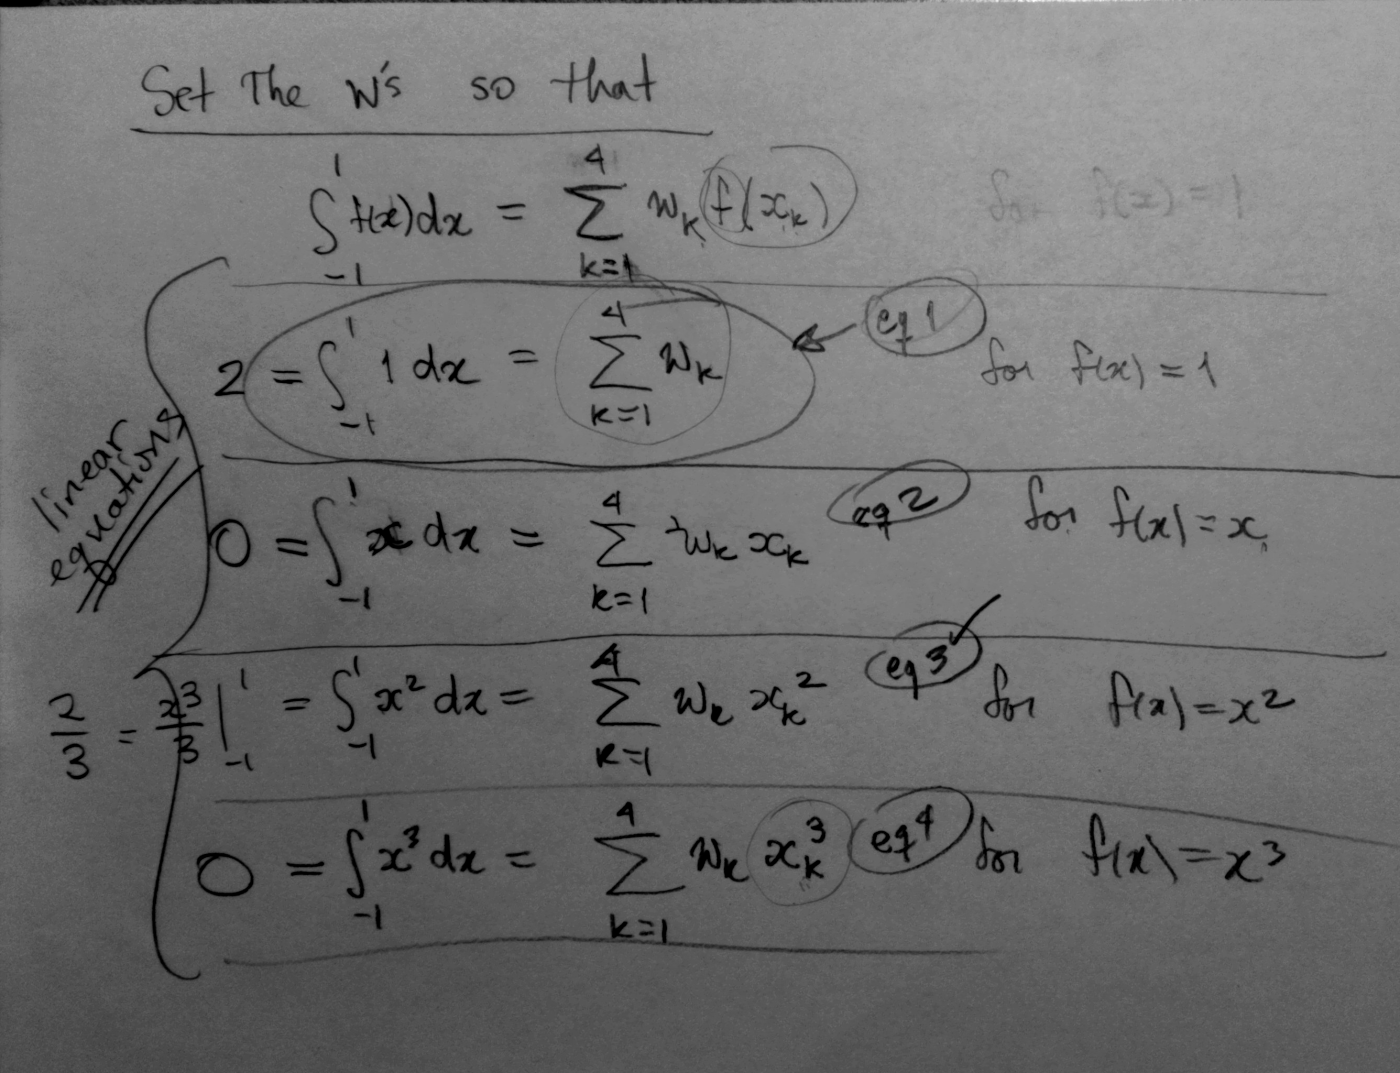 Set The W's so that
∫_{-1}^{1} f(x)dx = ∑_{k=1}^{4} w_k f(x_k) for f(x) = 1
2 = ∫_{-1}^{1} 1 dx = ∑_{k=1}^{4} w_k eq 1 for f(x) = 1
linear
equations
0 = ∫_{-1}^{1} x dx = ∑_{k=1}^{4} w_k x_k eq 2 for f(x) = x
2/3 = x^3/3 |_{-1}^{1} = ∫_{-1}^{1} x^2 dx = ∑_{k=1}^{4} w_k x_k^2 eq 3 ✓ for f(x) = x^2
0 = ∫_{-1}^{1} x^3 dx = ∑_{k=1}^{4} w_k x_k^3 eq 4 for f(x) = x^3